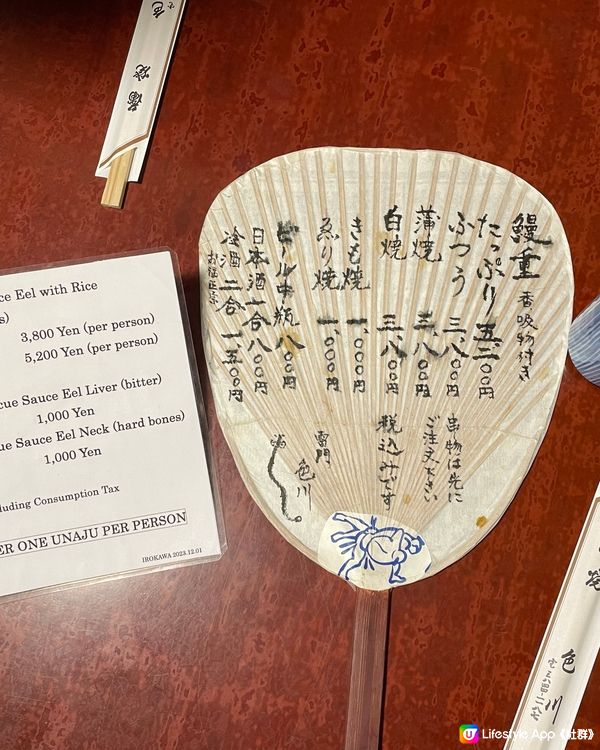 色
蒲焼
ce Eel with Rice
s)
3,800 Yen (per person)
5,200 Yen (per person)
cue Sauce Eel Liver (bitter)
1,000 Yen
ue Sauce Eel Neck (hard bones)
1,000 Yen
luding Consumption Tax
ER ONE UNAJU PER PERSON
IROKAWA 2023.12.01
鰻重 香吸物付き
たっぷり 五、二〇〇円
ふつう 三、八〇〇円
蒲焼 三、八〇〇円
白焼 三、八〇〇円
きも焼 一、〇〇〇円
ゑり焼 一、〇〇〇円
ビール中瓶 八〇〇円
日本酒一合 八〇〇円
冷酒二合 一、五〇〇円
串物は先に
ご注文ください
税込みです
雷門
色川
色川
Lifestyle App《社群》